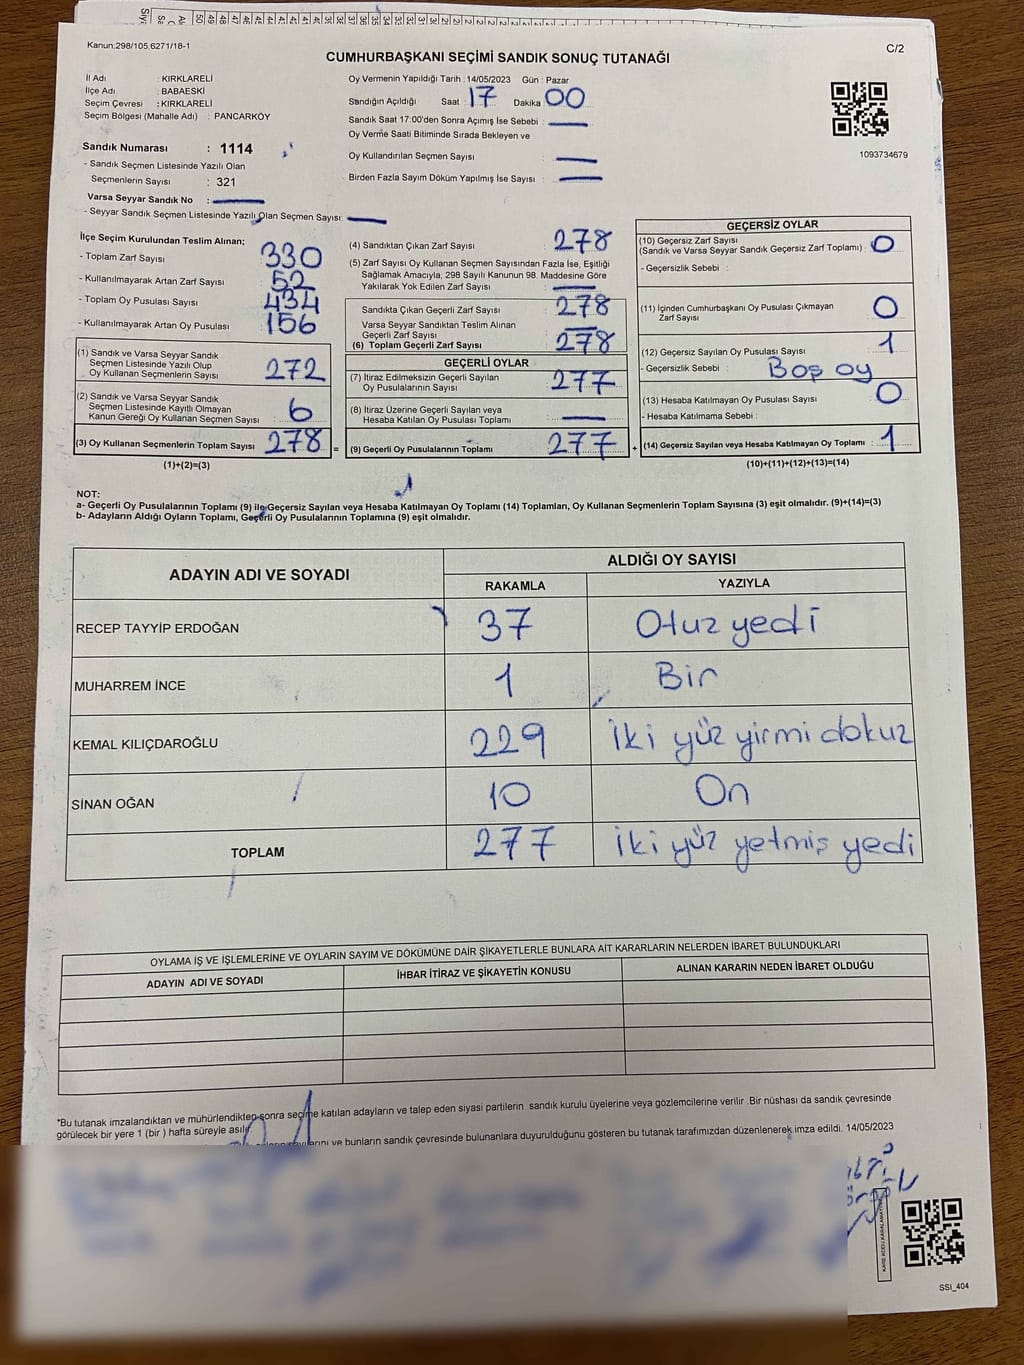 Kanun.298/105,6271/18-1
C/2
CUMHURBAŞKANI SEÇİMİ SANDIK SONUÇ TUTANAĞI
İl Adı : KIRKLARELİ
İlçe Adı : BABAESKİ
Seçim Çevresi : KIRKLARELİ
Seçim Bölgesi (Mahalle Adı) : PANCARKÖY
Oy Vermenin Yapıldığı Tarih : 14/05/2023 Gün : Pazar
Sandığın Açıldığı Saat : 17 Dakika : 00
Sandık Saat 17:00'den Sonra Açımış İse Sebebi :
Oy Verme Saati Bitiminde Sırada Bekleyen ve
Oy Kullandırılan Seçmen Sayısı :
Birden Fazla Sayım Döküm Yapılmış İse Sayısı :
1093734679
Sandık Numarası : 1114
- Sandık Seçmen Listesinde Yazılı Olan
Seçmenlerin Sayısı : 321
Varsa Seyyar Sandık No :
- Seyyar Sandık Seçmen Listesinde Yazılı Olan Seçmen Sayısı:
İlçe Seçim Kurulundan Teslim Alınan;
- Toplam Zarf Sayısı : 330
- Kullanılmayarak Artan Zarf Sayısı : 52
- Toplam Oy Pusulası Sayısı : 434
- Kullanılmayarak Artan Oy Pusulası : 156
(1) Sandık ve Varsa Seyyar Sandık
Seçmen Listesinde Yazılı Olup
Oy Kullanan Seçmenlerin Sayısı : 272
(2) Sandık ve Varsa Seyyar Sandık
Seçmen Listesinde Kayıtlı Olmayan
Kanun Gereği Oy Kullanan Seçmen Sayısı : 6
(3) Oy Kullanan Seçmenlerin Toplam Sayısı : 278 =
(1)+(2)=(3)
(4) Sandıktan Çıkan Zarf Sayısı : 278
(5) Zarf Sayısı Oy Kullanan Seçmen Sayısından Fazla İse, Eşitliği
Sağlamak Amacıyla; 298 Sayılı Kanunun 98. Maddesine Göre
Yakılarak Yok Edilen Zarf Sayısı :
Sandıkta Çıkan Geçerli Zarf Sayısı : 278
Varsa Seyyar Sandıktan Teslim Alınan
Geçerli Zarf Sayısı :
(6) Toplam Geçerli Zarf Sayısı : 278
GEÇERLİ OYLAR
(7) İtiraz Edilmeksizin Geçerli Sayılan
Oy Pusulalarının Sayısı : 277
(8) İtiraz Üzerine Geçerli Sayılan veya
Hesaba Katılan Oy Pusulası Toplamı :
(9) Geçerli Oy Pusulalarının Toplamı : 277 +
GEÇERSİZ OYLAR
(10) Geçersiz Zarf Sayısı
(Sandık ve Varsa Seyyar Sandık Geçersiz Zarf Toplamı) : 0
- Geçersizlik Sebebi :
(11) İçinden Cumhurbaşkanı Oy Pusulası Çıkmayan
Zarf Sayısı : 0
(12) Geçersiz Sayılan Oy Pusulası Sayısı : 1
- Geçersizlik Sebebi : Boş oy
(13) Hesaba Katılmayan Oy Pusulası Sayısı : 0
- Hesaba Katılmama Sebebi :
(14) Geçersiz Sayılan veya Hesaba Katılmayan Oy Toplamı : 1
(10)+(11)+(12)+(13)=(14)
NOT:
a- Geçerli Oy Pusulalarının Toplamı (9) ile Geçersiz Sayılan veya Hesaba Katılmayan Oy Toplamı (14) Toplamları, Oy Kullanan Seçmenlerin Toplam Sayısına (3) eşit olmalıdır. (9)+(14)=(3)
b- Adayların Aldığı Oyların Toplamı, Geçerli Oy Pusulalarının Toplamına (9) eşit olmalıdır.
ADAYIN ADI VE SOYADI ALDIĞI OY SAYISI
RAKAMLA YAZIYLA
RECEP TAYYİP ERDOĞAN 37 Otuz yedi
MUHARREM İNCE 1 Bir
KEMAL KILIÇDAROĞLU 229 İki yüz yirmi dokuz
SİNAN OĞAN 10 On
TOPLAM 277 İki yüz yetmiş yedi
OYLAMA İŞ VE İŞLEMLERİNE VE OYLARIN SAYIM VE DÖKÜMÜNE DAİR ŞİKAYETLERLE BUNLARA AİT KARARLARIN NELERDEN İBARET BULUNDUKLARI
ADAYIN ADI VE SOYADI İHBAR İTİRAZ VE ŞİKAYETİN KONUSU ALINAN KARARIN NEDEN İBARET OLDUĞU
*Bu tutanak imzalandıktan ve mühürlendikten sonra seçime katılan adayların ve talep eden siyasi partilerin sandık kurulu üyelerine veya gözlemcilerine verilir .Bir nüshası da sandık çevresinde
görülecek bir yere 1 (bir ) hafta süreyle asılır.
ve bunların sandık çevresinde bulunanlara duyurulduğunu gösteren bu tutanak tarafımızdan düzenlenerek imza edildi. 14/05/2023
SSI_404